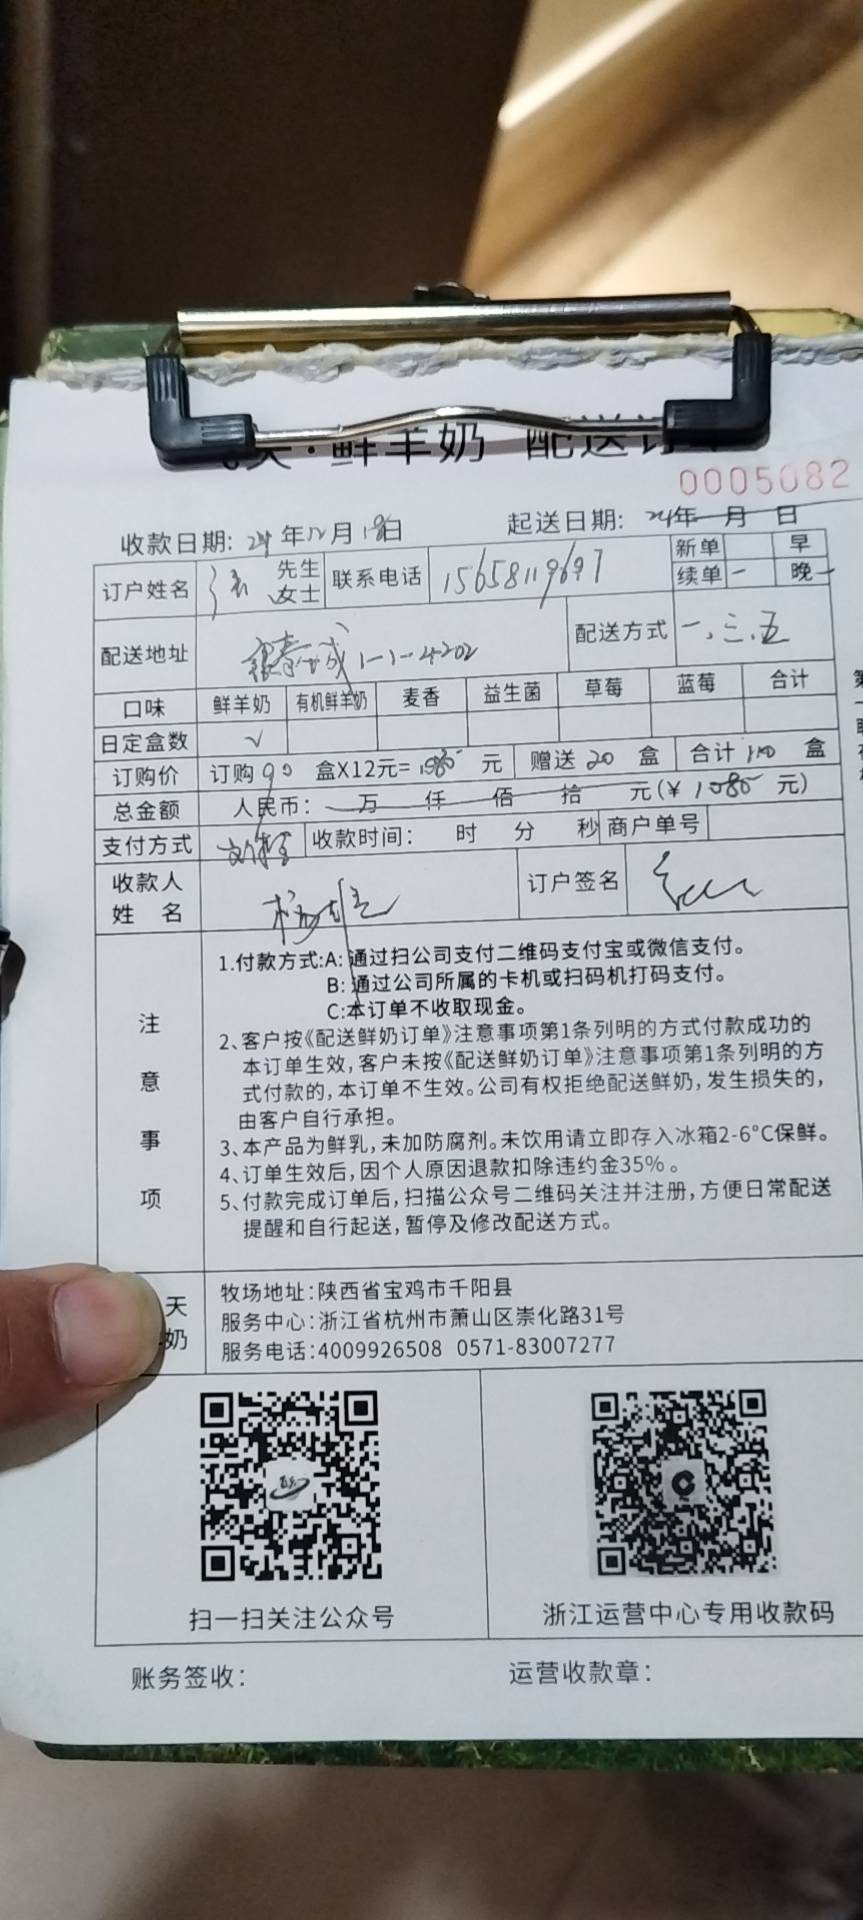 ·鲜羊奶 配送订
0005082
收款日期: 24年12月18日 起送日期: 24年 月 日
订户姓名 先生 女士 联系电话 15658119697 新单 早
续单 一 晚 一
配送地址 1-1-4202 配送方式 一、三、五
口味 鲜羊奶 有机鲜羊奶 麦香 益生菌 草莓 蓝莓 合计
日定盒数 √
订购价 订购90 盒X12元=1080 元 赠送 20 盒 合计 110 盒
总金额 人民币: 万 仟 佰 拾 元(¥ 1080 元)
支付方式 收款时间: 时 分 秒 商户单号
收款人
姓 名 订户签名
注意事项
1.付款方式:A: 通过扫公司支付二维码支付宝或微信支付。
B: 通过公司所属的卡机或扫码机打码支付。
C:本订单不收取现金。
2、客户按《配送鲜奶订单》注意事项第1条列明的方式付款成功的
本订单生效,客户未按《配送鲜奶订单》注意事项第1条列明的方
式付款的,本订单不生效。公司有权拒绝配送鲜奶,发生损失的,
由客户自行承担。
3、本产品为鲜乳,未加防腐剂。未饮用请立即存入冰箱2-6°C保鲜。
4、订单生效后,因个人原因退款扣除违约金35%。
5、付款完成订单后,扫描公众号二维码关注并注册,方便日常配送
提醒和自行起送,暂停及修改配送方式。
天
奶
牧场地址:陕西省宝鸡市千阳县
服务中心:浙江省杭州市萧山区崇化路31号
服务电话:4009926508 0571-83007277
扫一扫关注公众号 浙江运营中心专用收款码
账务签收: 运营收款章: